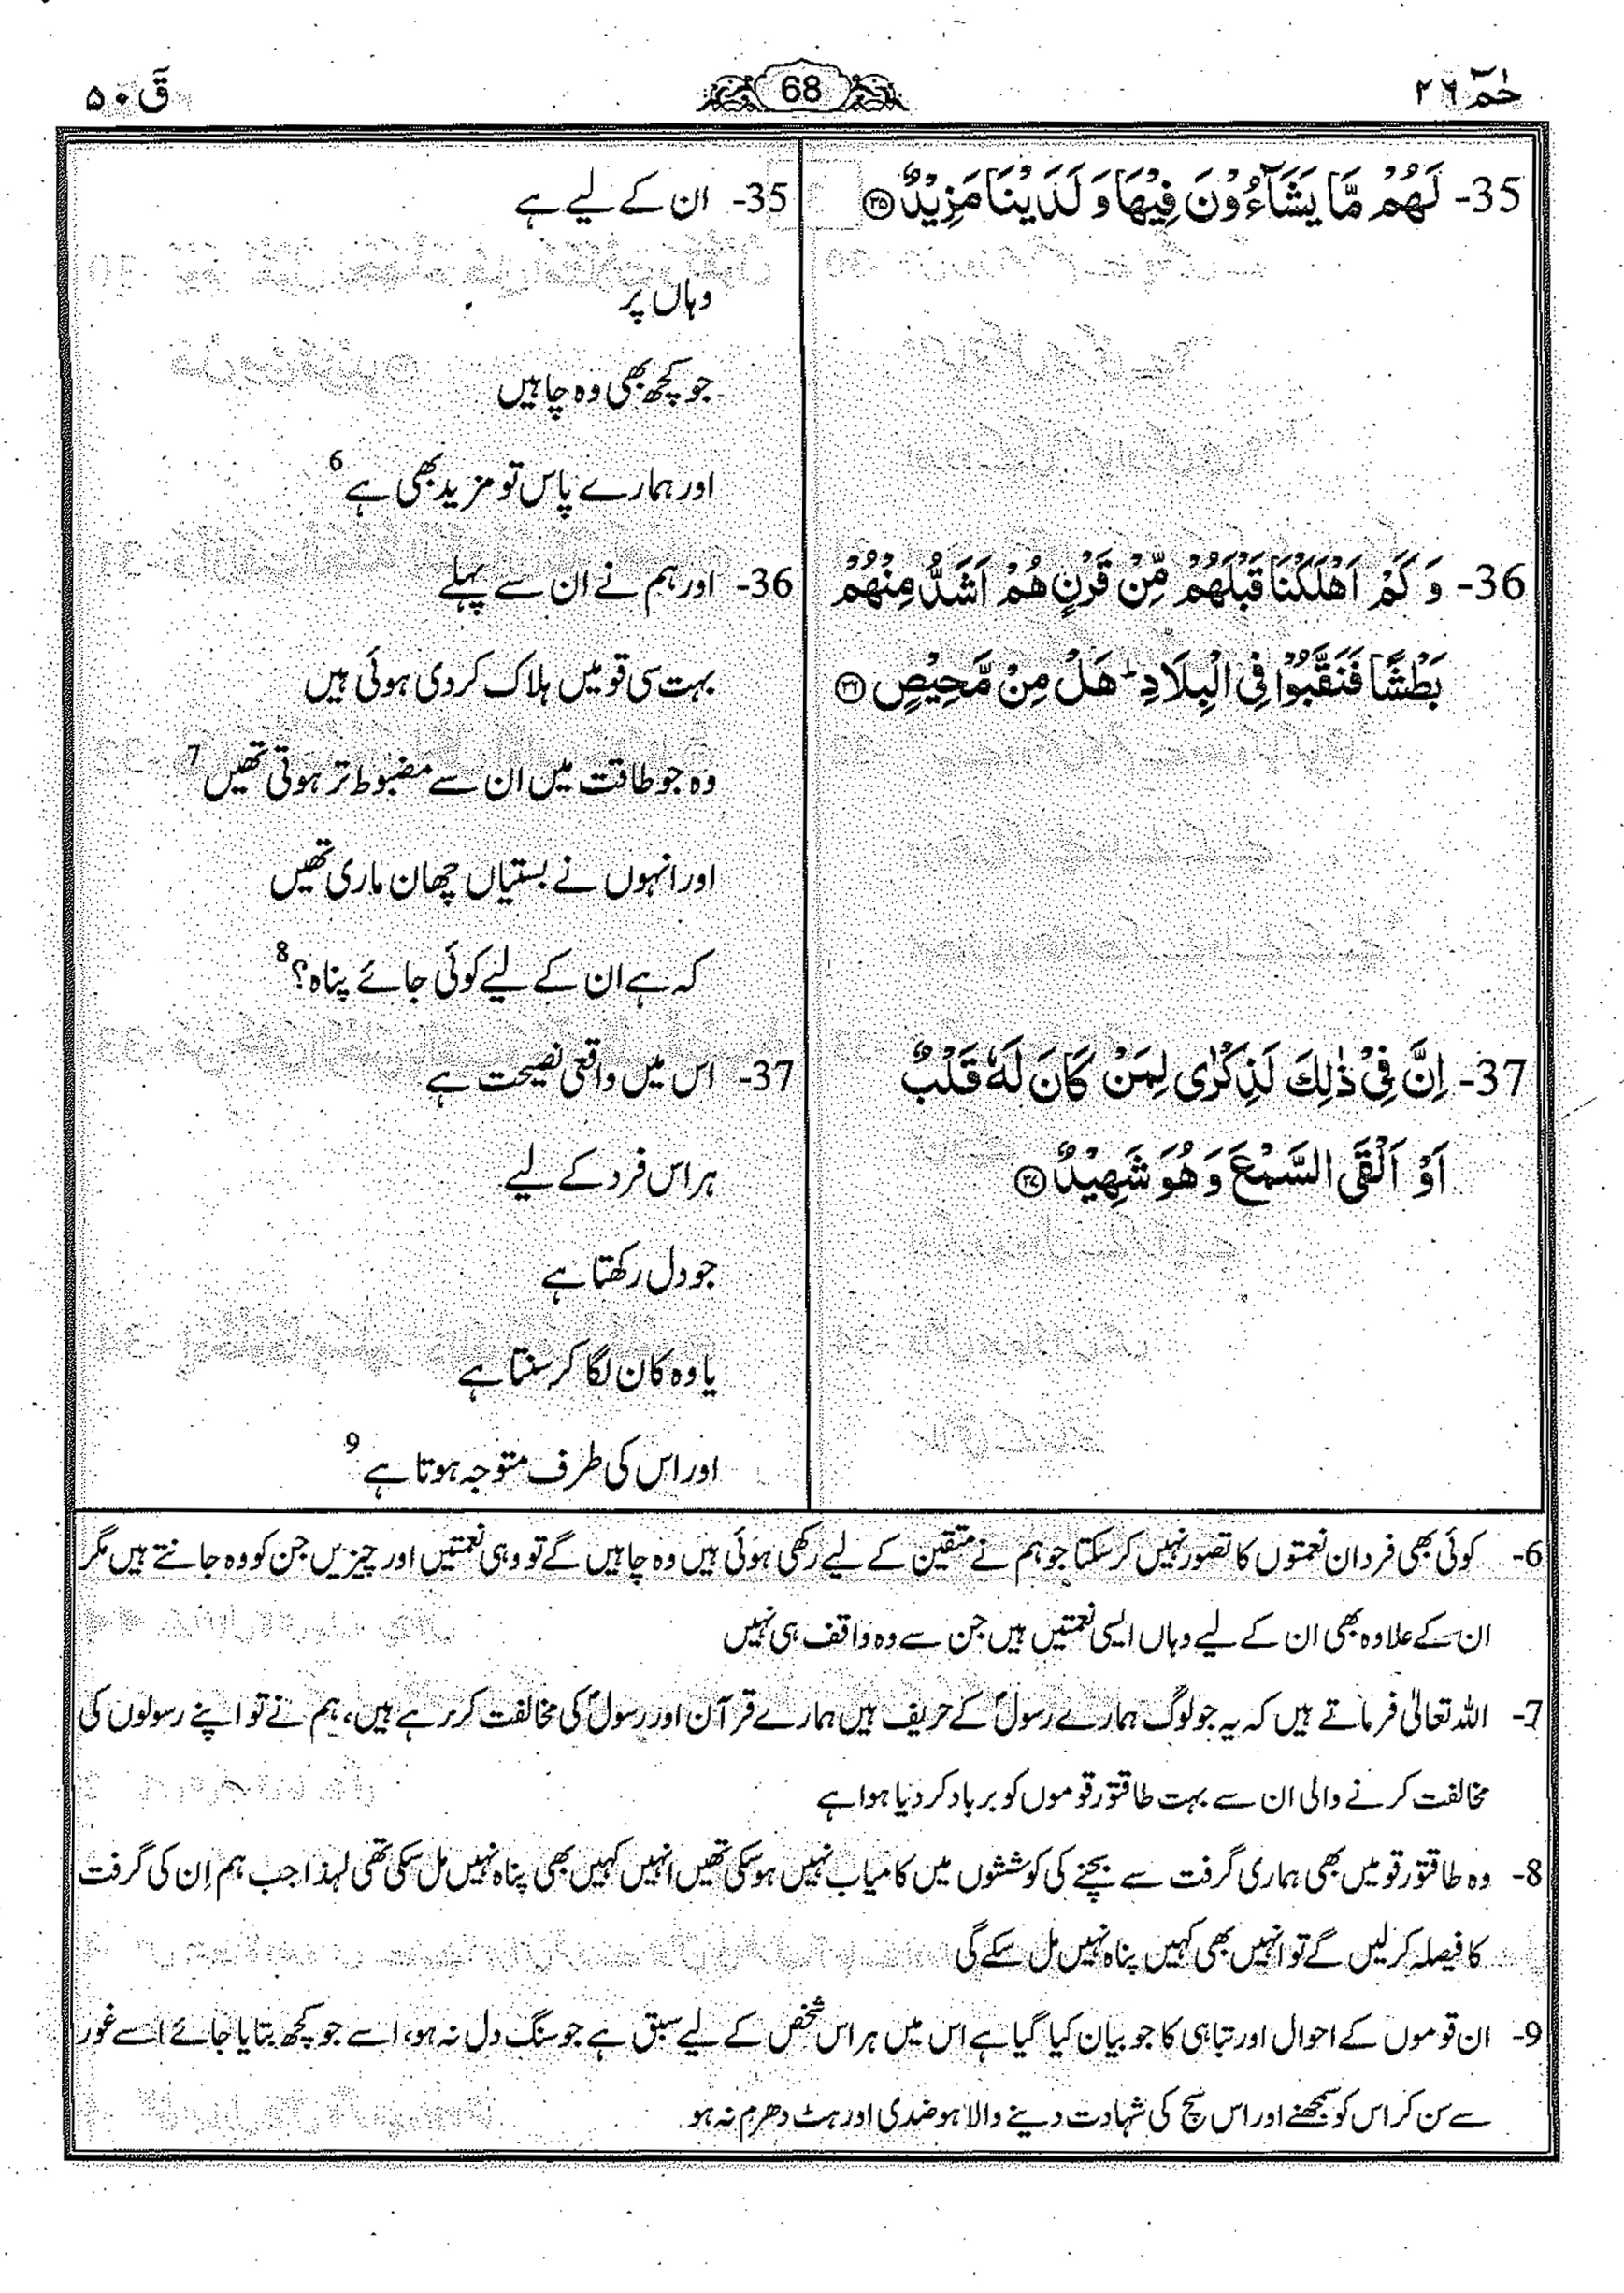 حٰمٓ ۲۶
68
قٓ ۵۰
35- لَهُمْ مَّا يَشَآءُوْنَ فِيْهَا وَ لَدَيْنَا مَزِيْدٌ ﴿۳۵﴾
36- وَ كَمْ اَهْلَكْنَا قَبْلَهُمْ مِّنْ قَرْنٍ هُمْ اَشَدُّ مِنْهُمْ
بَطْشًا فَنَقَّبُوْا فِي الْبِلَادِ ؕ هَلْ مِنْ مَّحِيْصٍ ﴿۳۶﴾
37- اِنَّ فِيْ ذٰلِكَ لَذِكْرٰى لِمَنْ كَانَ لَهٗ قَلْبٌ
اَوْ اَلْقَى السَّمْعَ وَ هُوَ شَهِيْدٌ ﴿۳۷﴾
35- ان کے لیے ہے
وہاں پر
جو کچھ بھی وہ چاہیں
اور ہمارے پاس تو مزید بھی ہے 6
36- اور ہم نے ان سے پہلے
بہت سی قومیں ہلاک کر دی ہوئی ہیں
وہ جو طاقت میں ان سے مضبوط تر ہوتی تھیں 7
اور انہوں نے بستیاں چھان ماری تھیں
کہ ہے ان کے لیے کوئی جائے پناہ؟ 8
37- اس میں واقعی نصیحت ہے
ہر اس فرد کے لیے
جو دل رکھتا ہے
یا وہ کان لگا کر سنتا ہے
اور اس کی طرف متوجہ ہوتا ہے 9
6- کوئی بھی فرد ان نعمتوں کا تصور نہیں کر سکتا جو ہم نے متقین کے لیے رکھی ہوئی ہیں وہ چاہیں گے تو وہی نعمتیں اور چیزیں جن کو وہ جانتے ہیں مگر
ان کے علاوہ بھی ان کے لیے وہاں ایسی نعمتیں ہیں جن سے وہ واقف ہی نہیں
7- اللہ تعالیٰ فرماتے ہیں کہ یہ جو لوگ ہمارے رسولؐ کے حریف ہیں ہمارے قرآن اور رسولؐ کی مخالفت کر رہے ہیں، ہم نے تو اپنے رسولوں کی
مخالفت کرنے والی ان سے بہت طاقتور قوموں کو برباد کر دیا ہوا ہے
8- وہ طاقتور قومیں بھی ہماری گرفت سے بچنے کی کوششوں میں کامیاب نہیں ہو سکی تھیں انہیں کہیں بھی پناہ نہیں مل سکی تھی لہذا جب ہم اِن کی گرفت
کا فیصلہ کر لیں گے تو انہیں بھی کہیں پناہ نہیں مل سکے گی
9- ان قوموں کے احوال اور تباہی کا جو بیان کیا گیا ہے اس میں ہر اس شخص کے لیے سبق ہے جو سنگ دل نہ ہو، اسے جو کچھ بتایا جائے اسے غور
سے سن کر اس کو سمجھنے اور اس سچ کی شہادت دینے والا ہو ضدی اور ہٹ دھرم نہ ہو